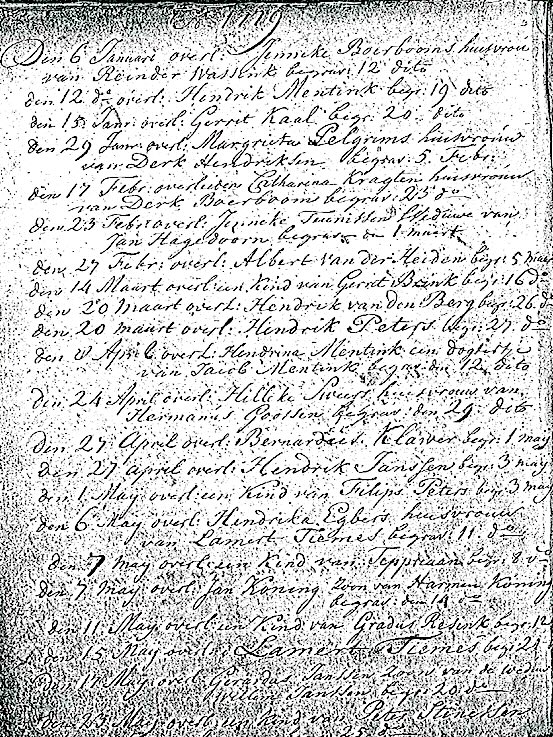 1779
Den 6 Januari overl: Jenneke Boerbooms huisvrou
van Reinder Wassink begrav: 12 dito
den 12 do overl: Hendrik Mentink begr: 19 dito
den 15 Janr: overl: Gerrit Kaal begr: 20: dito
den 29 Janr: overl: Margrieta Pelgrims huisvrouw
van Derk Hendriksen begrav: 5. Febr:
den 17 Febr: overleden Catharina Kragten huisvrouw
van Derk Boerboom begrav: 25 do
den 23 Febr: overl: Jenneke Teunissen Weduwe van
Jan Hagedoorn begrav: de 1 maart
den 27 Febr: overl: Albert van der Heiden begr: 5 maar
den 14 Maart overl: een Kind van Gerrit Brink begr: 16 d
den 20 maart overl: Hendrik van den Berg begr: 26 do
den 20 maart overl: Hendrik Peters begr: 27. d
den 8 April overl: Hendrina Mentink een dogtertje
van Jacob Mentink begrav: den 12 dito
den 24 April overl: Hilleke Sweers huisvrouw van
Hermanus Goossen begrav: den 29: dito
den 27 April overl: Bernardus Klawer begr: 1 may
den 27 April overl: Hendrik Janssen begr: 3 may
den 1 May overl: een Kind van Filips Peters begr: 3 may
den 6 May overl: Hendrika Egbers huisvrouw
van Lamert Tiemes begrav: 11 do
den 7 may overl: een Kind van begr: 8
den 7 may overl: Jan Koning zoon van Harmen Koning
begrav: den 11
den 11 May overl: een Kind van Gradus begr: 12
den 15 May overl: Lamert Tiemes begr: 21
den 17 May overl: Gerardus Janssen zoon van de Wedu
Janssen begr: 20 do
den 23 May overl: een Kind van
25 do